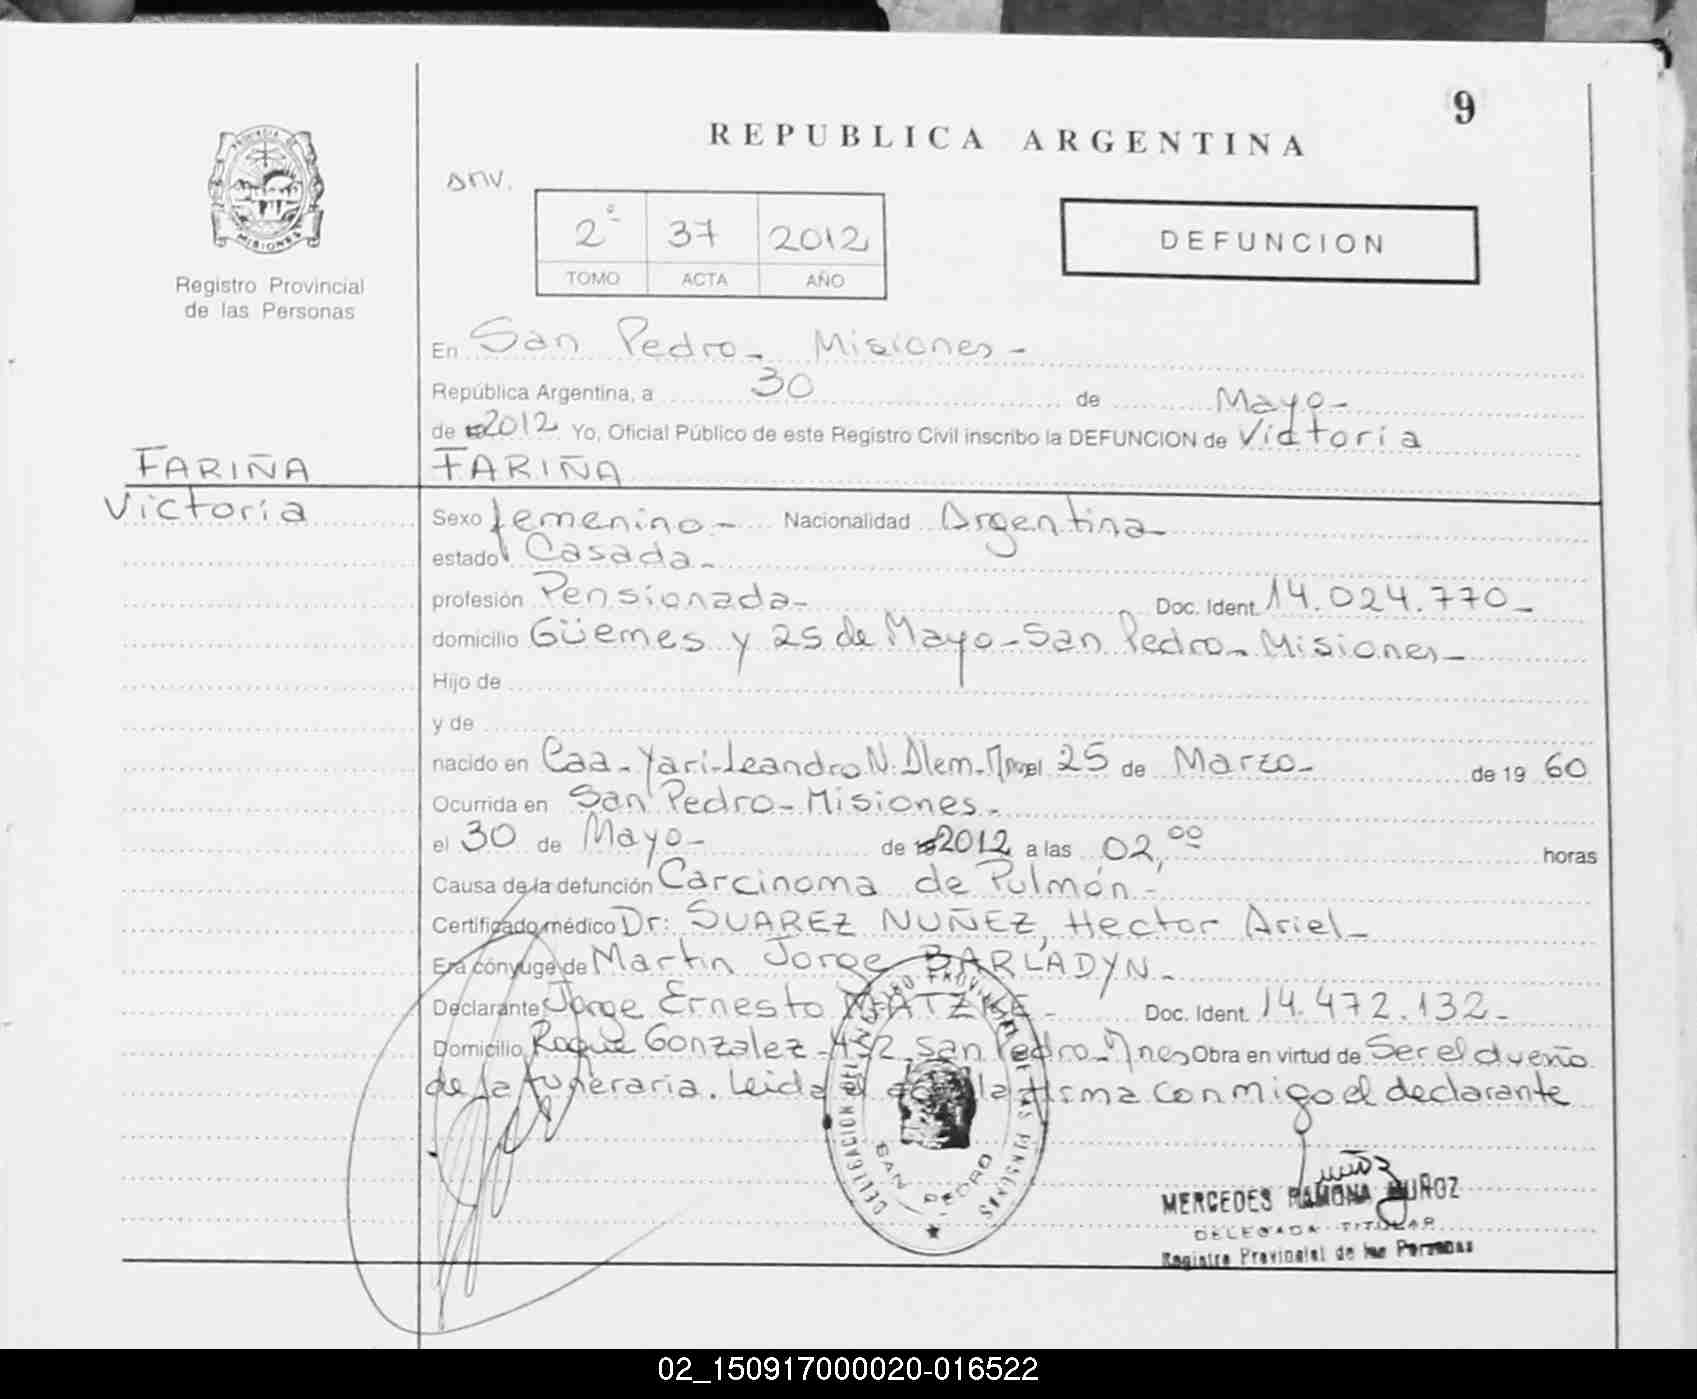 9
REPUBLICA ARGENTINA
PROVINCIA
MISIONES
Registro Provincial
de las Personas
2º 37 2012
TOMO ACTA AÑO
DEFUNCION
En San Pedro - Misiones -
República Argentina, a 30 de Mayo -
de 2012 Yo, Oficial Público de este Registro Civil inscribo la DEFUNCION de Victoria
FARIÑA FARIÑA
Victoria
Sexo femenino - Nacionalidad Argentina
estado Casada -
profesión Pensionada - Doc. Ident. 14.024.770 -
domicilio Güemes y 25 de Mayo - San Pedro - Misiones -
Hijo de
y de
nacido en Caa - Yari - Leandro N. Alem - Mnes el 25 de Marzo - de 19 60
Ocurrida en San Pedro - Misiones -
el 30 de Mayo - de 2012 a las 02,00 horas
Causa de la defunción Carcinoma de Pulmón -
Certificado médico Dr: SUAREZ NUÑEZ, Hector Ariel -
Era cónyuge de Martin Jorge BARLADYN -
Declarante Jorge Ernesto Doc. Ident. 14.472.132 -
Domicilio Roque Gonzalez - 432, San Pedro - Mnes Obra en virtud de Ser el dueño
de la funeraria. Leida el acta la firma conmigo el declarante
DELEGACION DEL REGISTRO PROVINCIAL DE LAS PERSONAS
SAN PEDRO
MERCEDES RAMONA MUÑOZ
DELEGADA TITULAR
Registro Provincial de las Personas
02_150917000020-016522